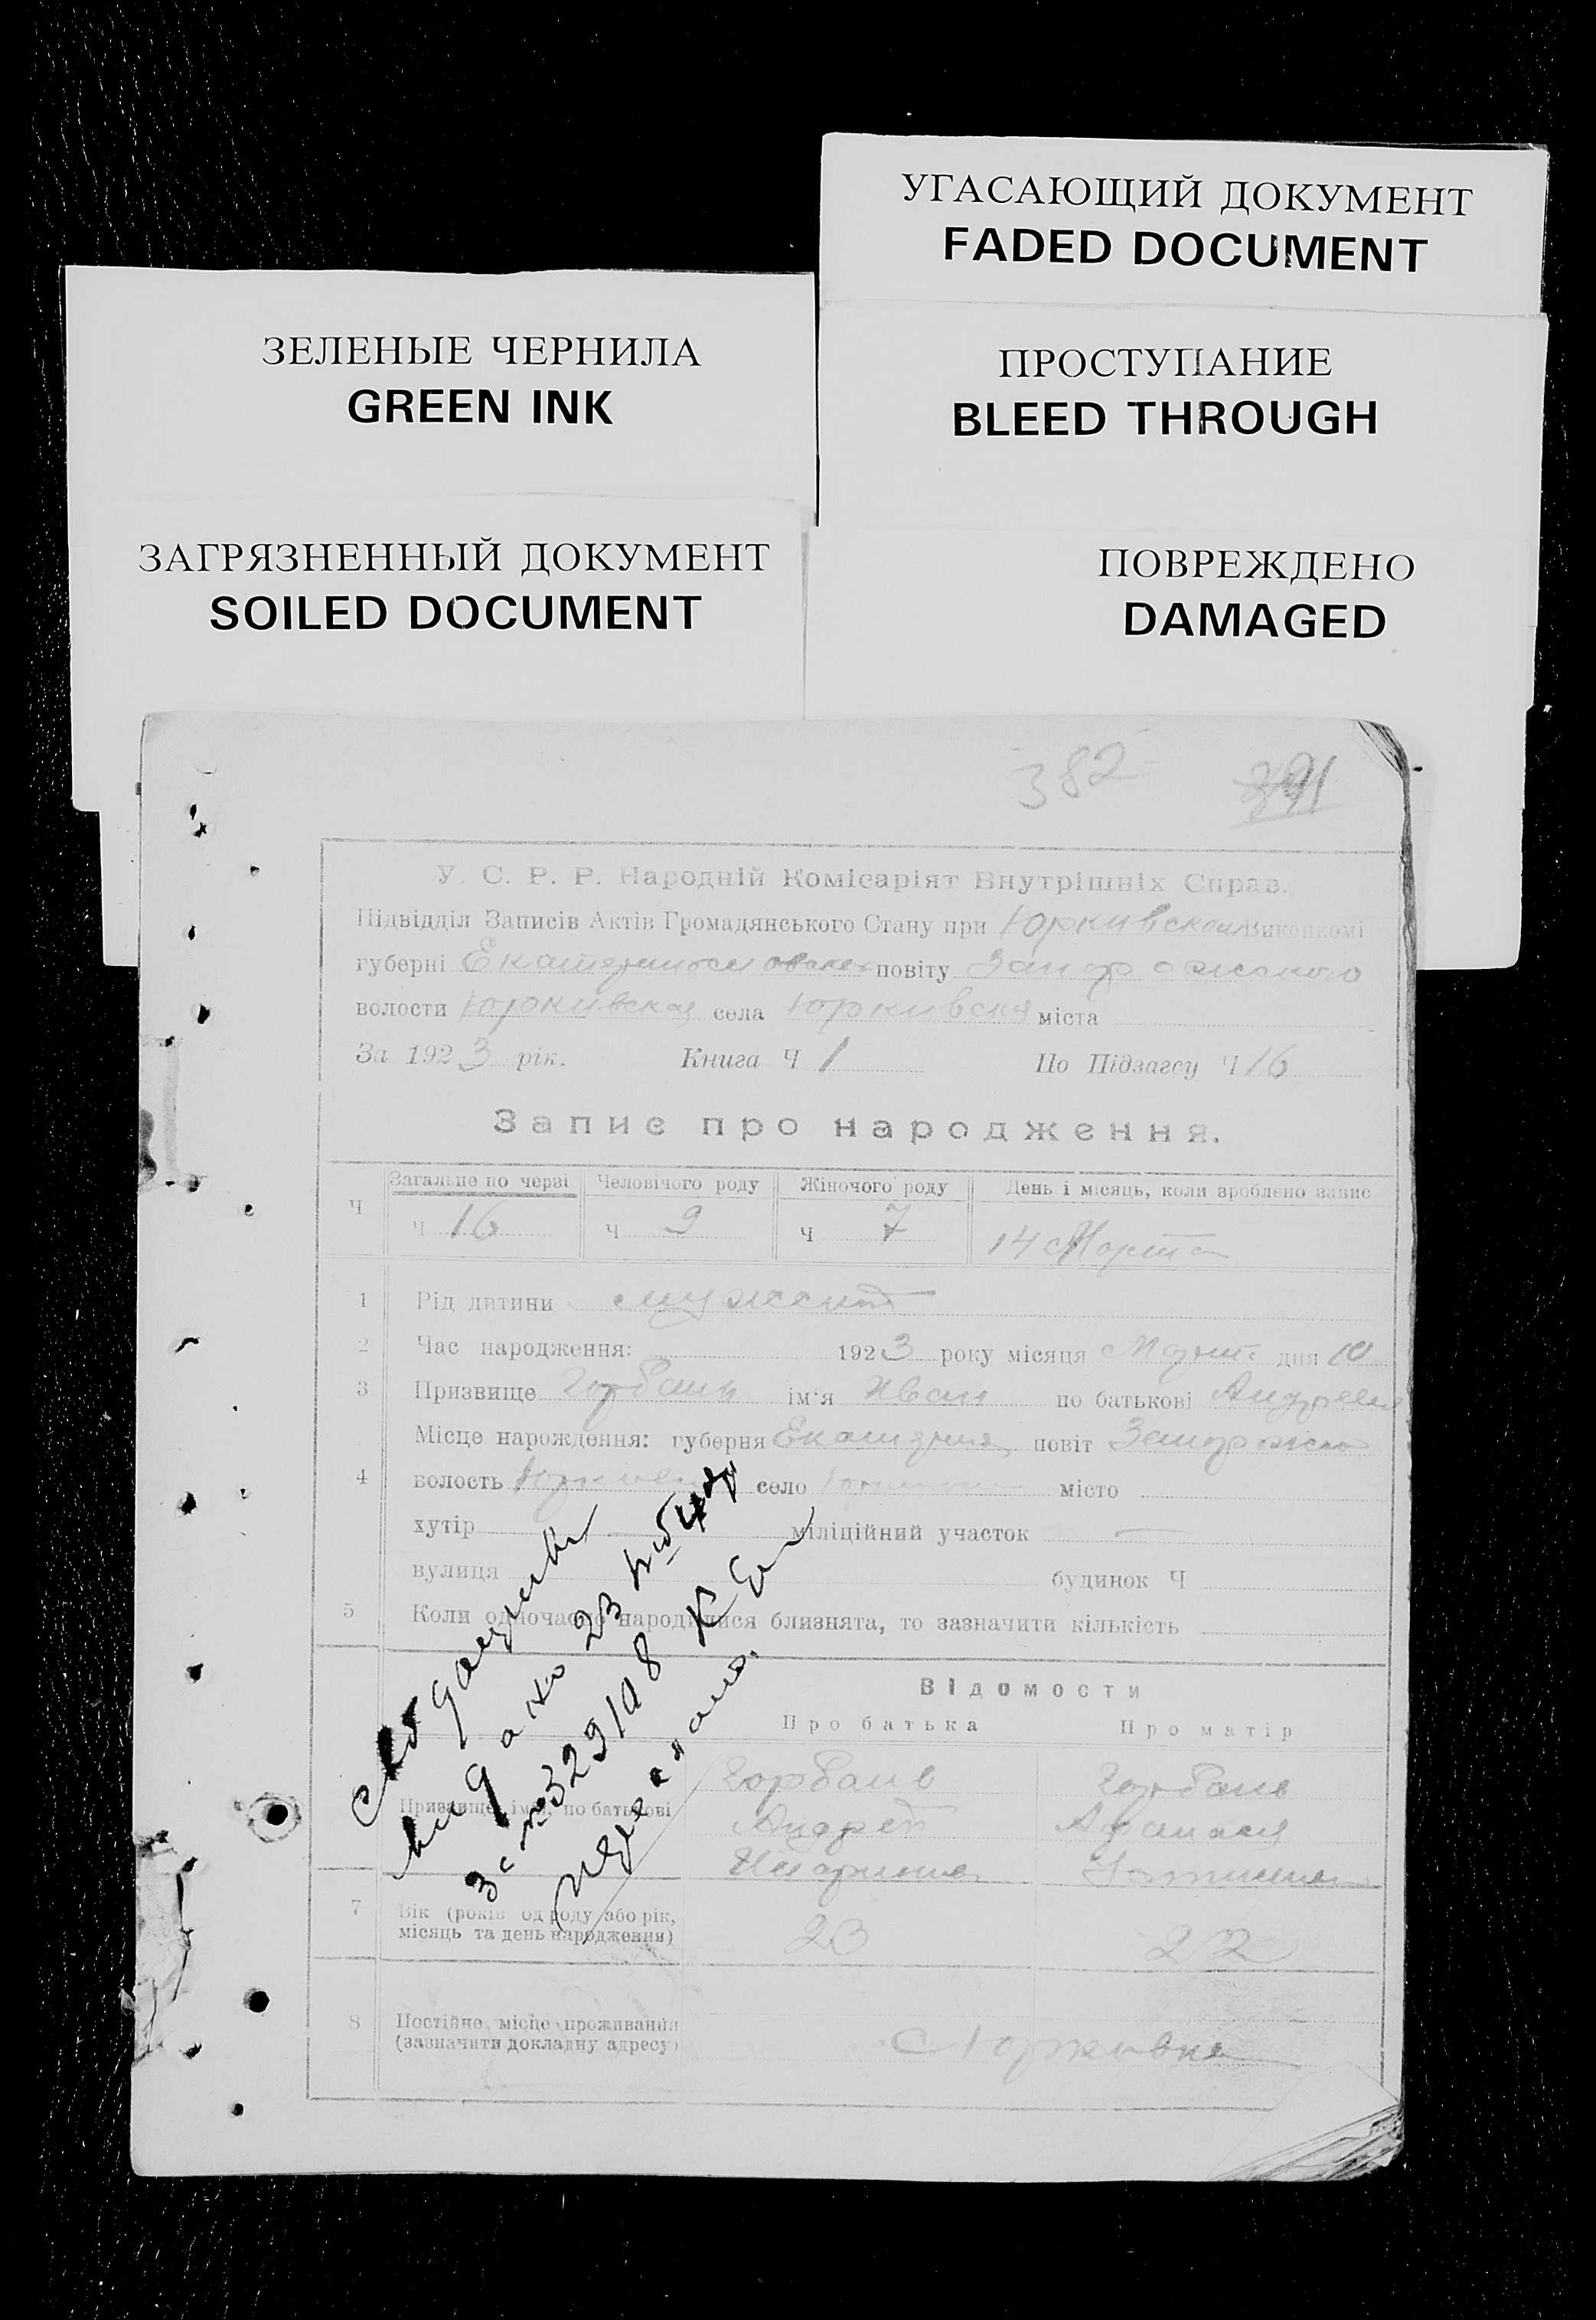 УГАСАЮЩИЙ ДОКУМЕНТ
FADED DOCUMENT
ЗЕЛЕНЫЕ ЧЕРНИЛА
GREEN INK
ПРОСТУПАНИЕ
BLEED THROUGH
ЗАГРЯЗНЕННЫЙ ДОКУМЕНТ
SOILED DOCUMENT
ПОВРЕЖДЕНО
DAMAGED
382 391
У. С. Р. Р. Народній Комісаріят Внутрішніх Справ.
Підвідділ Записів Актів Громадянського Стану при Юркивском Виконкомі
губерні Екатеринославск повіту Запорожского
волости Юркивская села Юркивска міста
За 1923 рік. Книга Ч 1 По Підзагсу Ч 16
Запис про народження.
Ч Загальне по черзі Человічого роду Жіночого роду День і місяць, коли зроблено запис
Ч 16 Ч 9 Ч 7 14 Марта
1 Рід дитини мужской
2 Час народження: 1923 року місяця Март дня 10
3 Призвище Горбань ім'я Иван по батькові Андреев
Місце нарождення: губерня Екатерин, повіт Запорожск
4 волость село місто
хутір міліційний участок —
вулиця будинок Ч
5 Коли одночасно народилися близнята, то зазначити кількість
Відомости
Про батька Про матір
Призвище, імя, по батькові
Горбань Горбань
Андрей Афанасия
7 Вік (років од роду або рік,
місяць та день народження) 23 22
8 Постійне місце проживання
(зазначити докладну адресу) с Юрковка
23
№ 329108